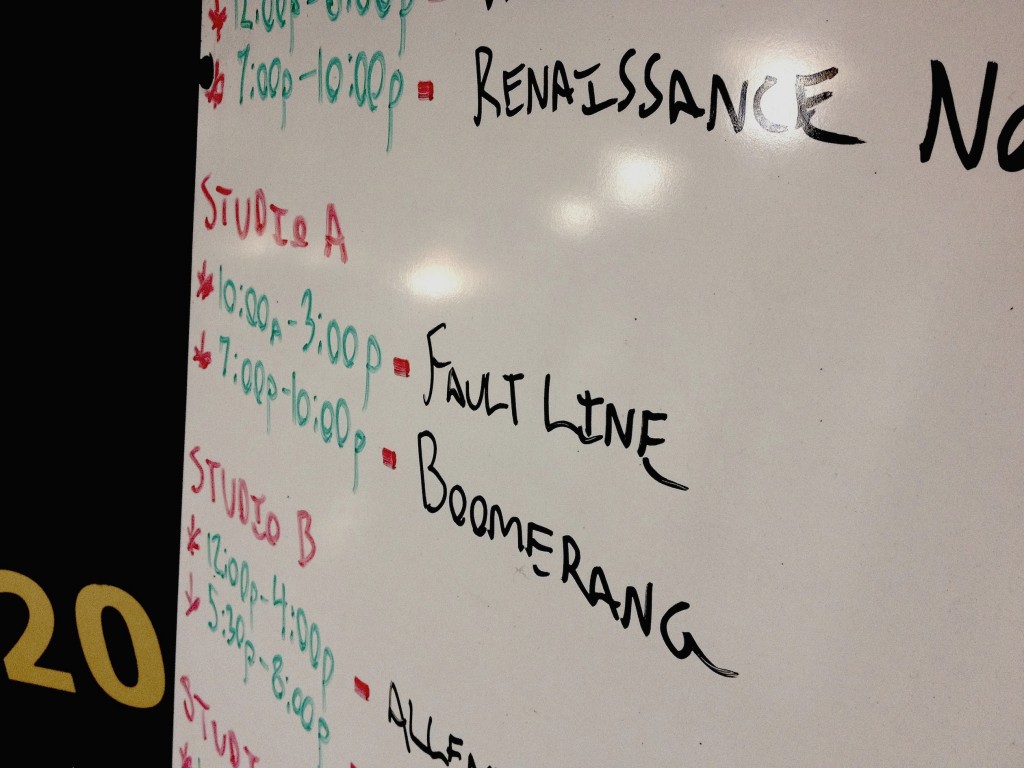 7:00p-10:00p - RENAISSANCE
STUDIO A
10:00A-3:00p - FAULT LINE
7:00p-10:00p - BOOMERANG
STUDIO B
12:00p-4:00p -
5:30p-8:00p
20